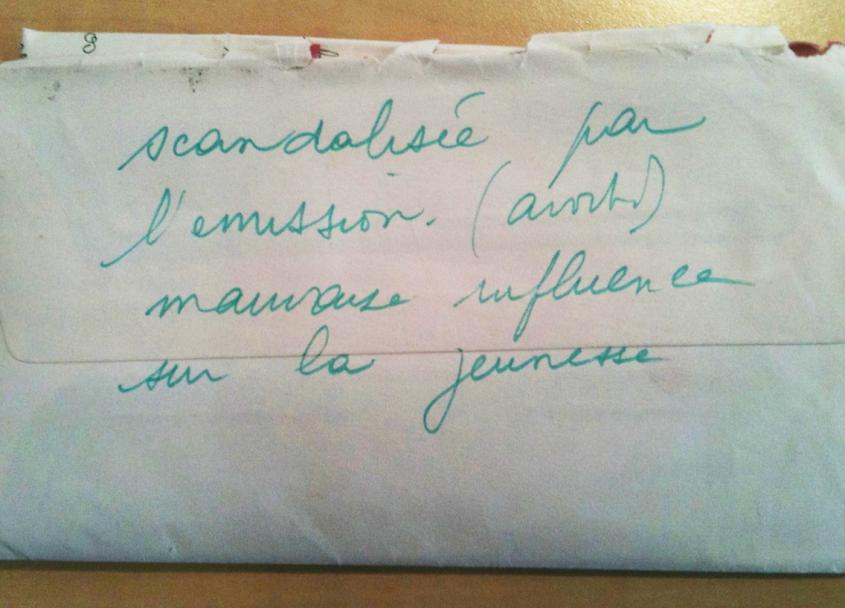 scandalisée par
l'emission. (avortt)
mauvaise influence
sur la jeunesse